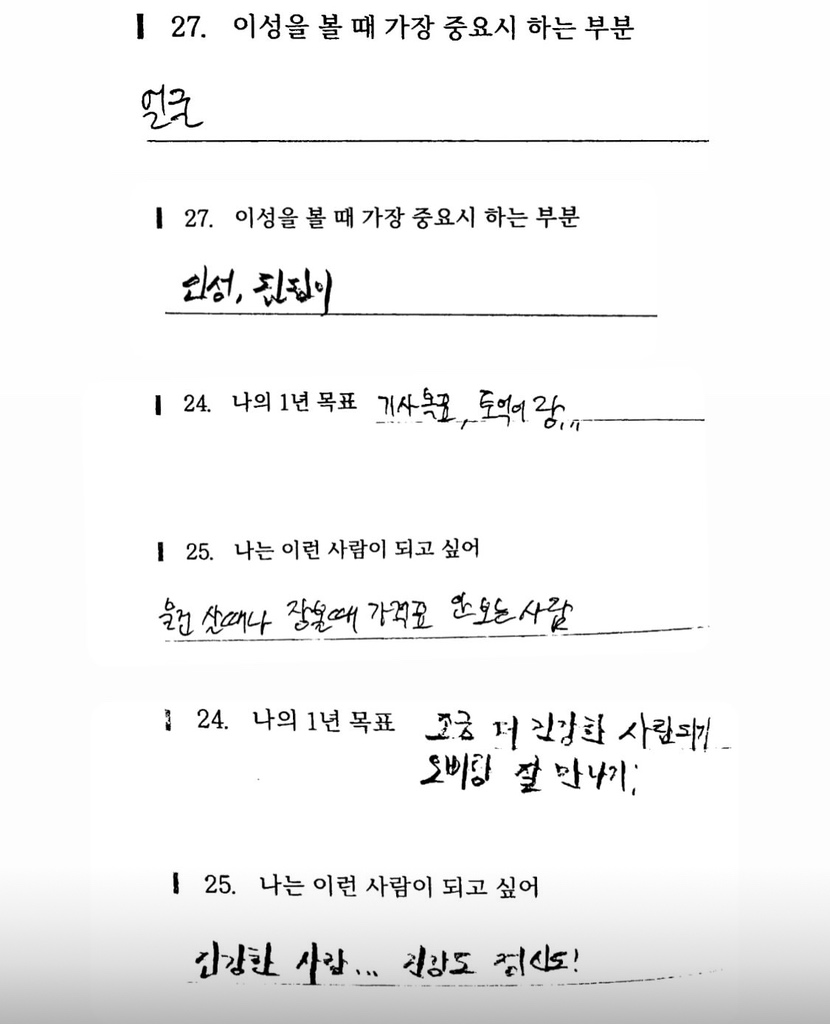 27. 이성을 볼 때 가장 중요시 하는 부분
얼굴
27. 이성을 볼 때 가장 중요시 하는 부분
인성, 됨됨이
24. 나의 1년 목표 기사목표, 토익이랑,,
25. 나는 이런 사람이 되고 싶어
물건 살때나 장볼때 가격표 안보는 사람
24. 나의 1년 목표 조금 더 건강한 사람되기
오비탕 잘 만나기;
25. 나는 이런 사람이 되고 싶어
건강한 사람... 건강도 정신도!